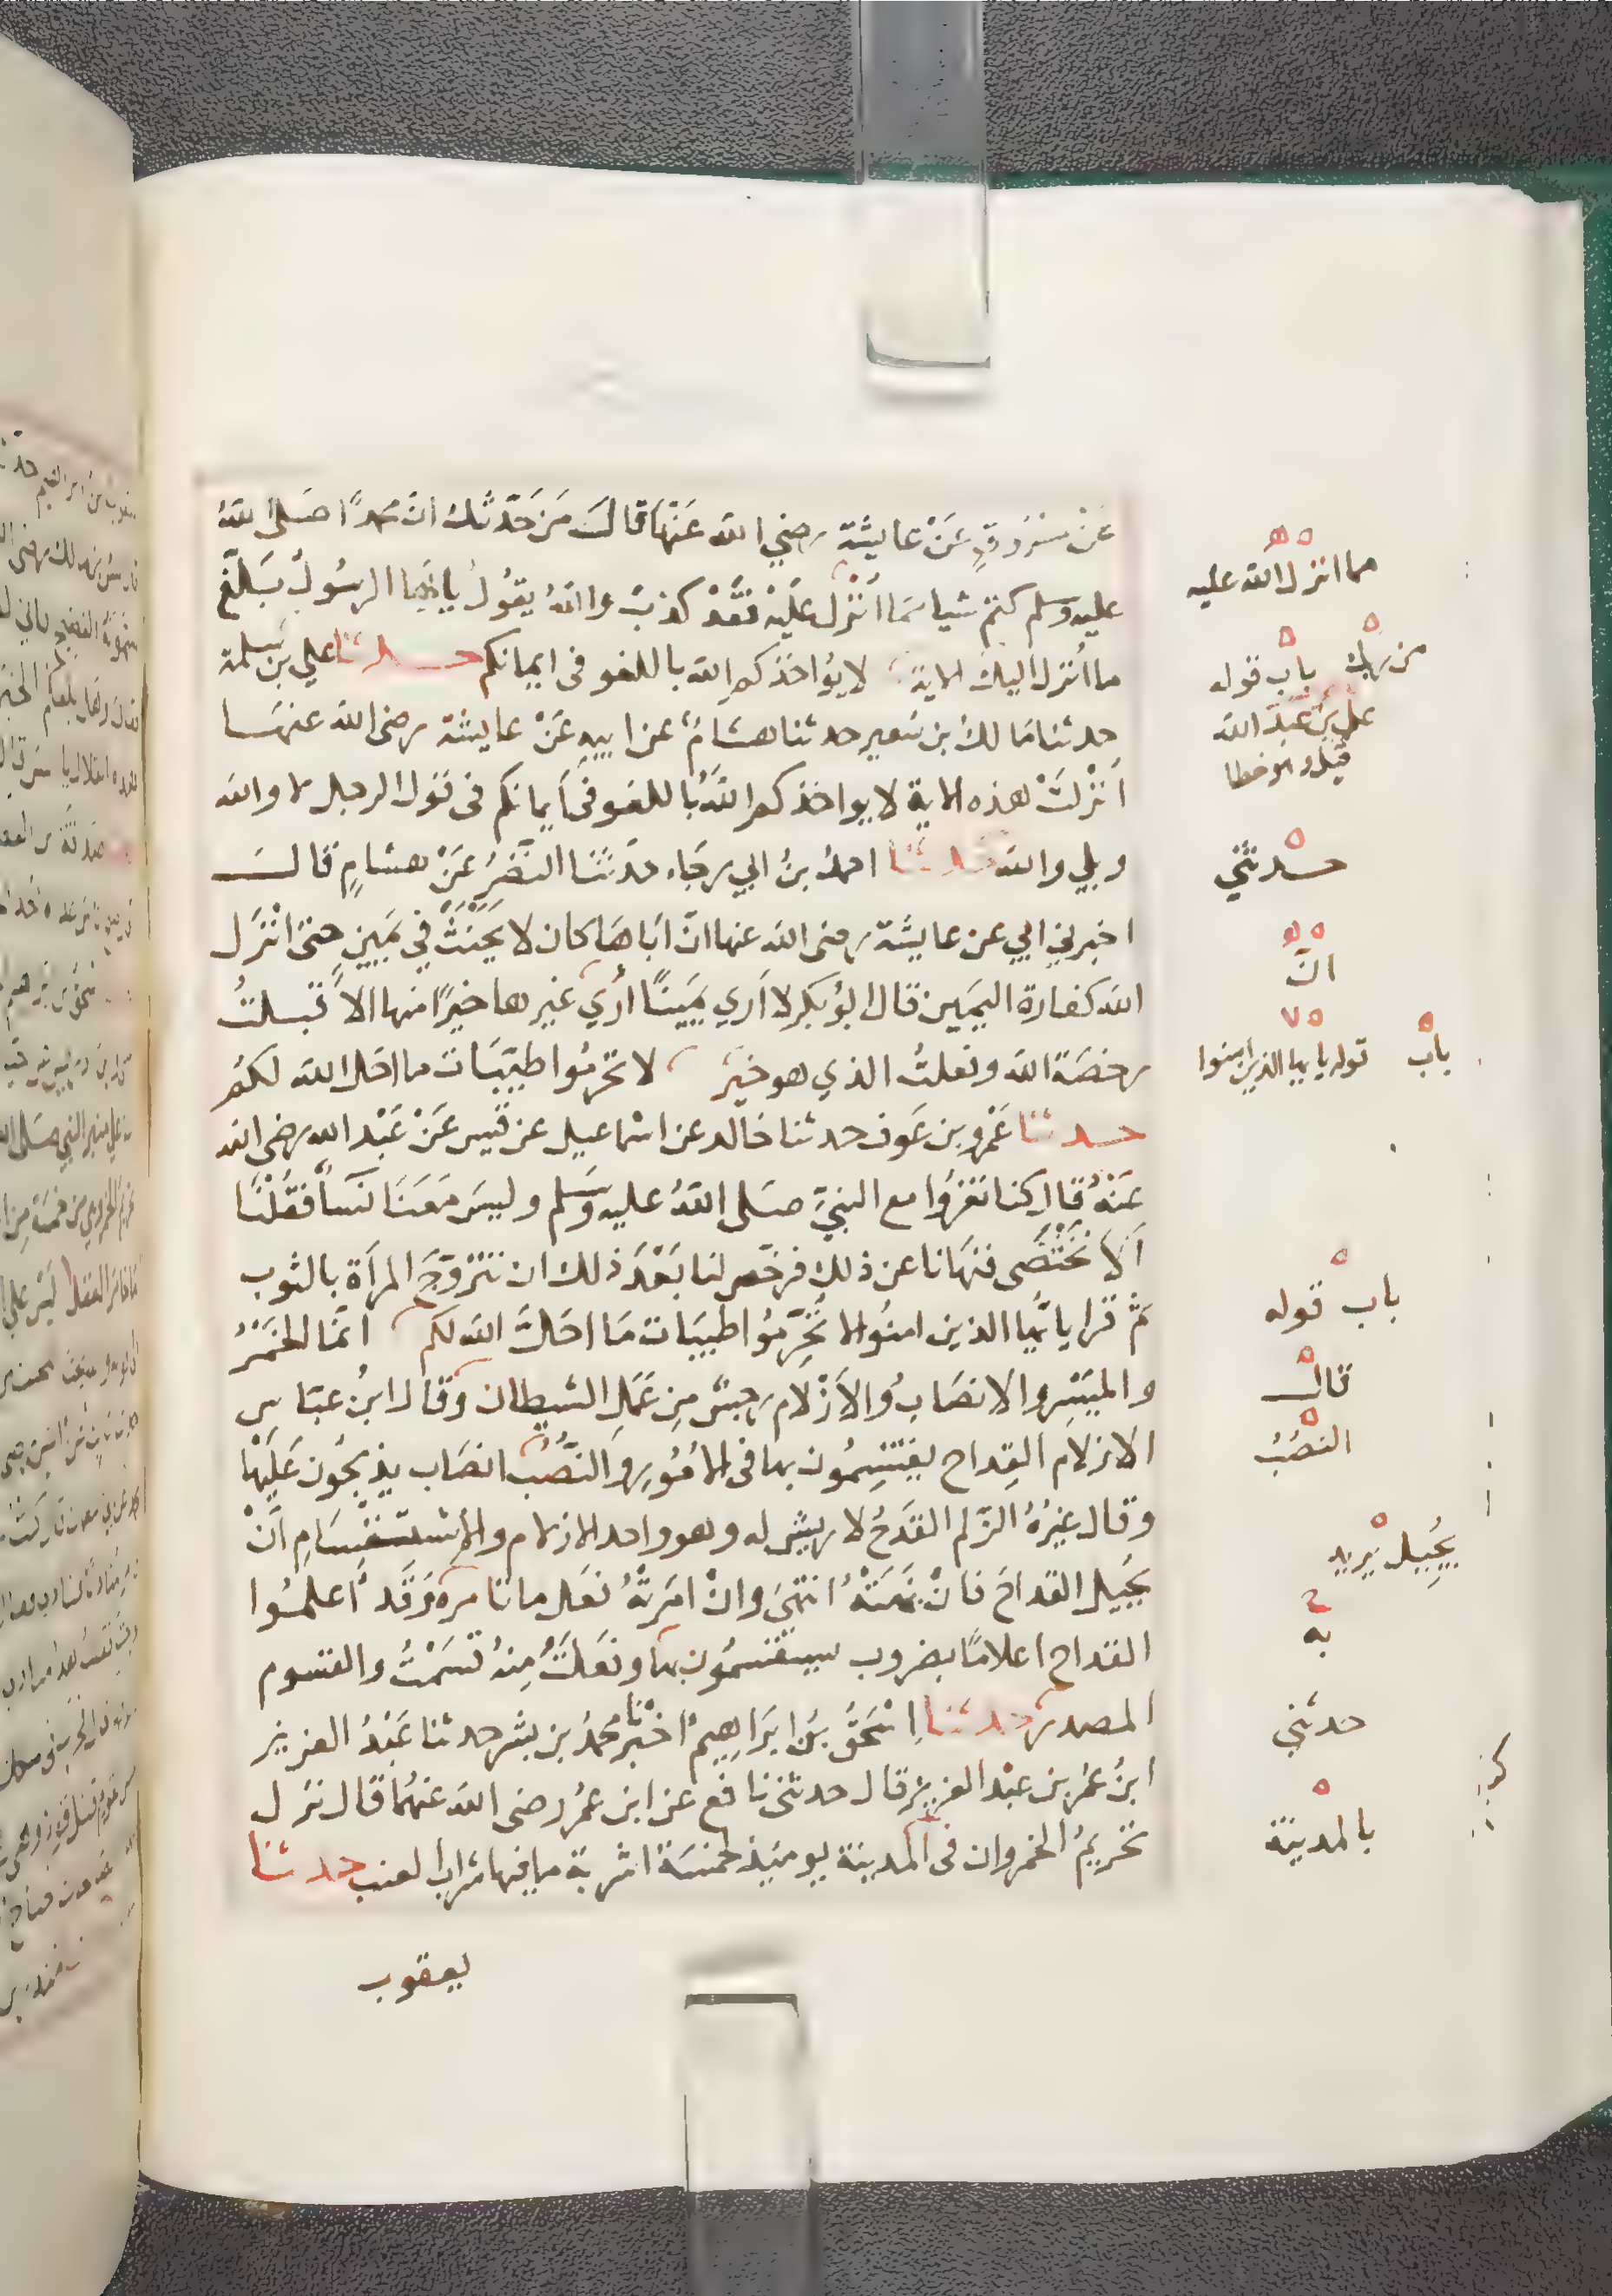 عَنْ مَسْرُوقٍ عَنْ عايشة رضي الله عَنْهَا قالت مَنْ حَدَّثك انّ محمدًا صَلى اللهُ
عليه وسلم كتم شيا ممَا أُنْزل عَلَيْه فَقَدْ كذبَ واللهُ يقُولُ يا ايّها الرسُولُ بَلِّغْ
ما أُنزل اليك الاية لا يُؤاخذكم الله باللغو فى ايمانكم حدثنا علي بن سَلمة
حدثنا مَالكُ بن سُعير حدثنا هشامٌ عن ابيهِ عَنْ عايشة رضى الله عنهَا
أنْزلَتْ هذه الاية لا يواخذكم اللهُ باللغو فى أيمانكم فى قول الرجل لا والله
وبلي والله حدثنا احمدُ بنُ ابي رجَاء حدَثنا النَّضْرُ عَنْ هشامٍ قالَ
اخبرني ابي عن عايشة رضى الله عنها انّ اَبَاهَا كان لا يَحْنَثُ فِي يَمِينٍ حتىَ انْزَل
الله كفارة اليمَين قال ابوُ بكر لا اَرَي يَمِينًا اُرَي غيرها خيرًا منها الاَّ قَبلتُ
رخصَة الله وفعلتُ الذي هو خيرٌ لا تحرّمُوا طيّبَات ما احَل الله لكمُ
حدثنا عَمْرو بن عَون حدثنا خالد عن اسْماعيل عن قَيس عَنْ عَبْد الله رضى الله
عَنْهُ قال كنا نغزُوا مع النبيّ صَلى اللهُ عليه وَسَلم وليسَ مَعَنَا نسَآءٌ فقُلْنَا
اَلاَ نَخْتَصَى فنهَانا عن ذلك فرخّص لنا بَعْدَ ذلك ان نتزَوّجَ المرأة بالثوب
ثمّ قرا يا ايُّها الذين امنُوا لا تُحَرّمُوا طيبَات مَا احَلَّ الله لكم انّمَا الخمْرُ
والميَسْرِ والانصَابُ والاَزْلام رجسٌ مِن عَمَلِ الشيطان وقال ابنُ عبّاس
الازلام القِداح يقتسِمُون بها فى الامُوُر والنُّصُبُ انصَاب يذبحُون عَلَيْهَا
وقال غيْرُهُ الزّلم القدَحُ لا ريش له وهو واحد الازلام والاستقْسَامِ اَنْ
يجُيل القداحَ فانْ نَهَتْهُ انتهىَ وانْ امَرَتْهُ فعَل ما تامرهُ وَقَدْ اعلمُوا
القداح اعلامًا بضروب يستقسمُون بها وَفَعَلَتُ مِنهُ قسَمْتُ والقسوم
المصدر حدثنا اِسْحَقُ بنُ ابرَاهِيمُ اخْبَرَنا محمدُ بن بشر حدثنا عَبْدُ العزيز
ابنُ عُمَر بن عبْد العزيز قال حدثنى نافع عن ابن عمُر رضى الله عنهُما قال نَزَل
تحريمُ الخمر وان فى المدينة يومَئِذ لخمسَة اشربة ما فيها شراب العنب حدثنا
يعقوب
مما انزل الله عليه
من ربك باب قوله
عليّ بنُ عَبْد الله
قيل وهو خطا
حدثني
انّ
باب قوله يا ايها الذين امنوا
باب قوله
قال
النصُبُ
يجُيل يريد
به
حدثني
بالمدينة